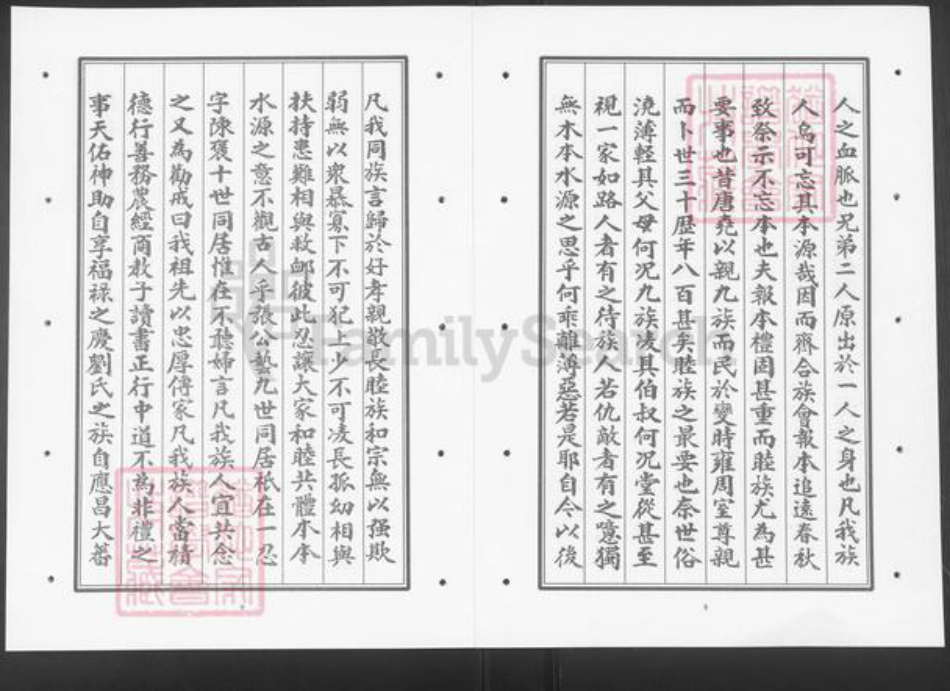 人之血脈也兄弟二人原出於一人之身也凡我族
人烏可忘其本源哉因而齊合族會報本追遠春秋
致祭示不忘本也夫報本禮固甚重而睦族尤為甚
要事也昔唐堯以親九族而民於變時雍周室尊親
而卜世三十歷年八百甚矣睦族之最要也奈世俗
澆薄輕其父母何况九族凌其伯叔何况堂從甚至
視一家如路人者有之待族人若仇敵者有之噫獨
無木本水源之思乎何乖離薄惡若是耶自今以後
凡我同族言歸於好孝親敬長睦族和宗無以强欺
弱無以衆暴寡下不可犯上少不可凌長孤幼相與
扶持患難相與救卹彼此忍讓大家和睦共體木本
水源之意不觀古人乎張公藝九世同居祇在一忍
字陳褒十世同居惟在不聽婦言凡我族人宜共念
之又為勸戒曰我祖先以忠厚傳家凡我族人當積
德行善務農經商教子讀書正行中道不為非禮之
事天佑神助自享福祿之慶劉氏之族自應昌大蕃
FamilySearch